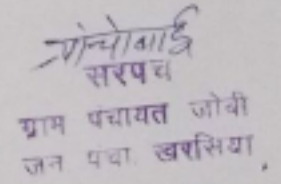 सरपंच
ग्राम पंचायत जोबी
जन पंचा. खरसिया